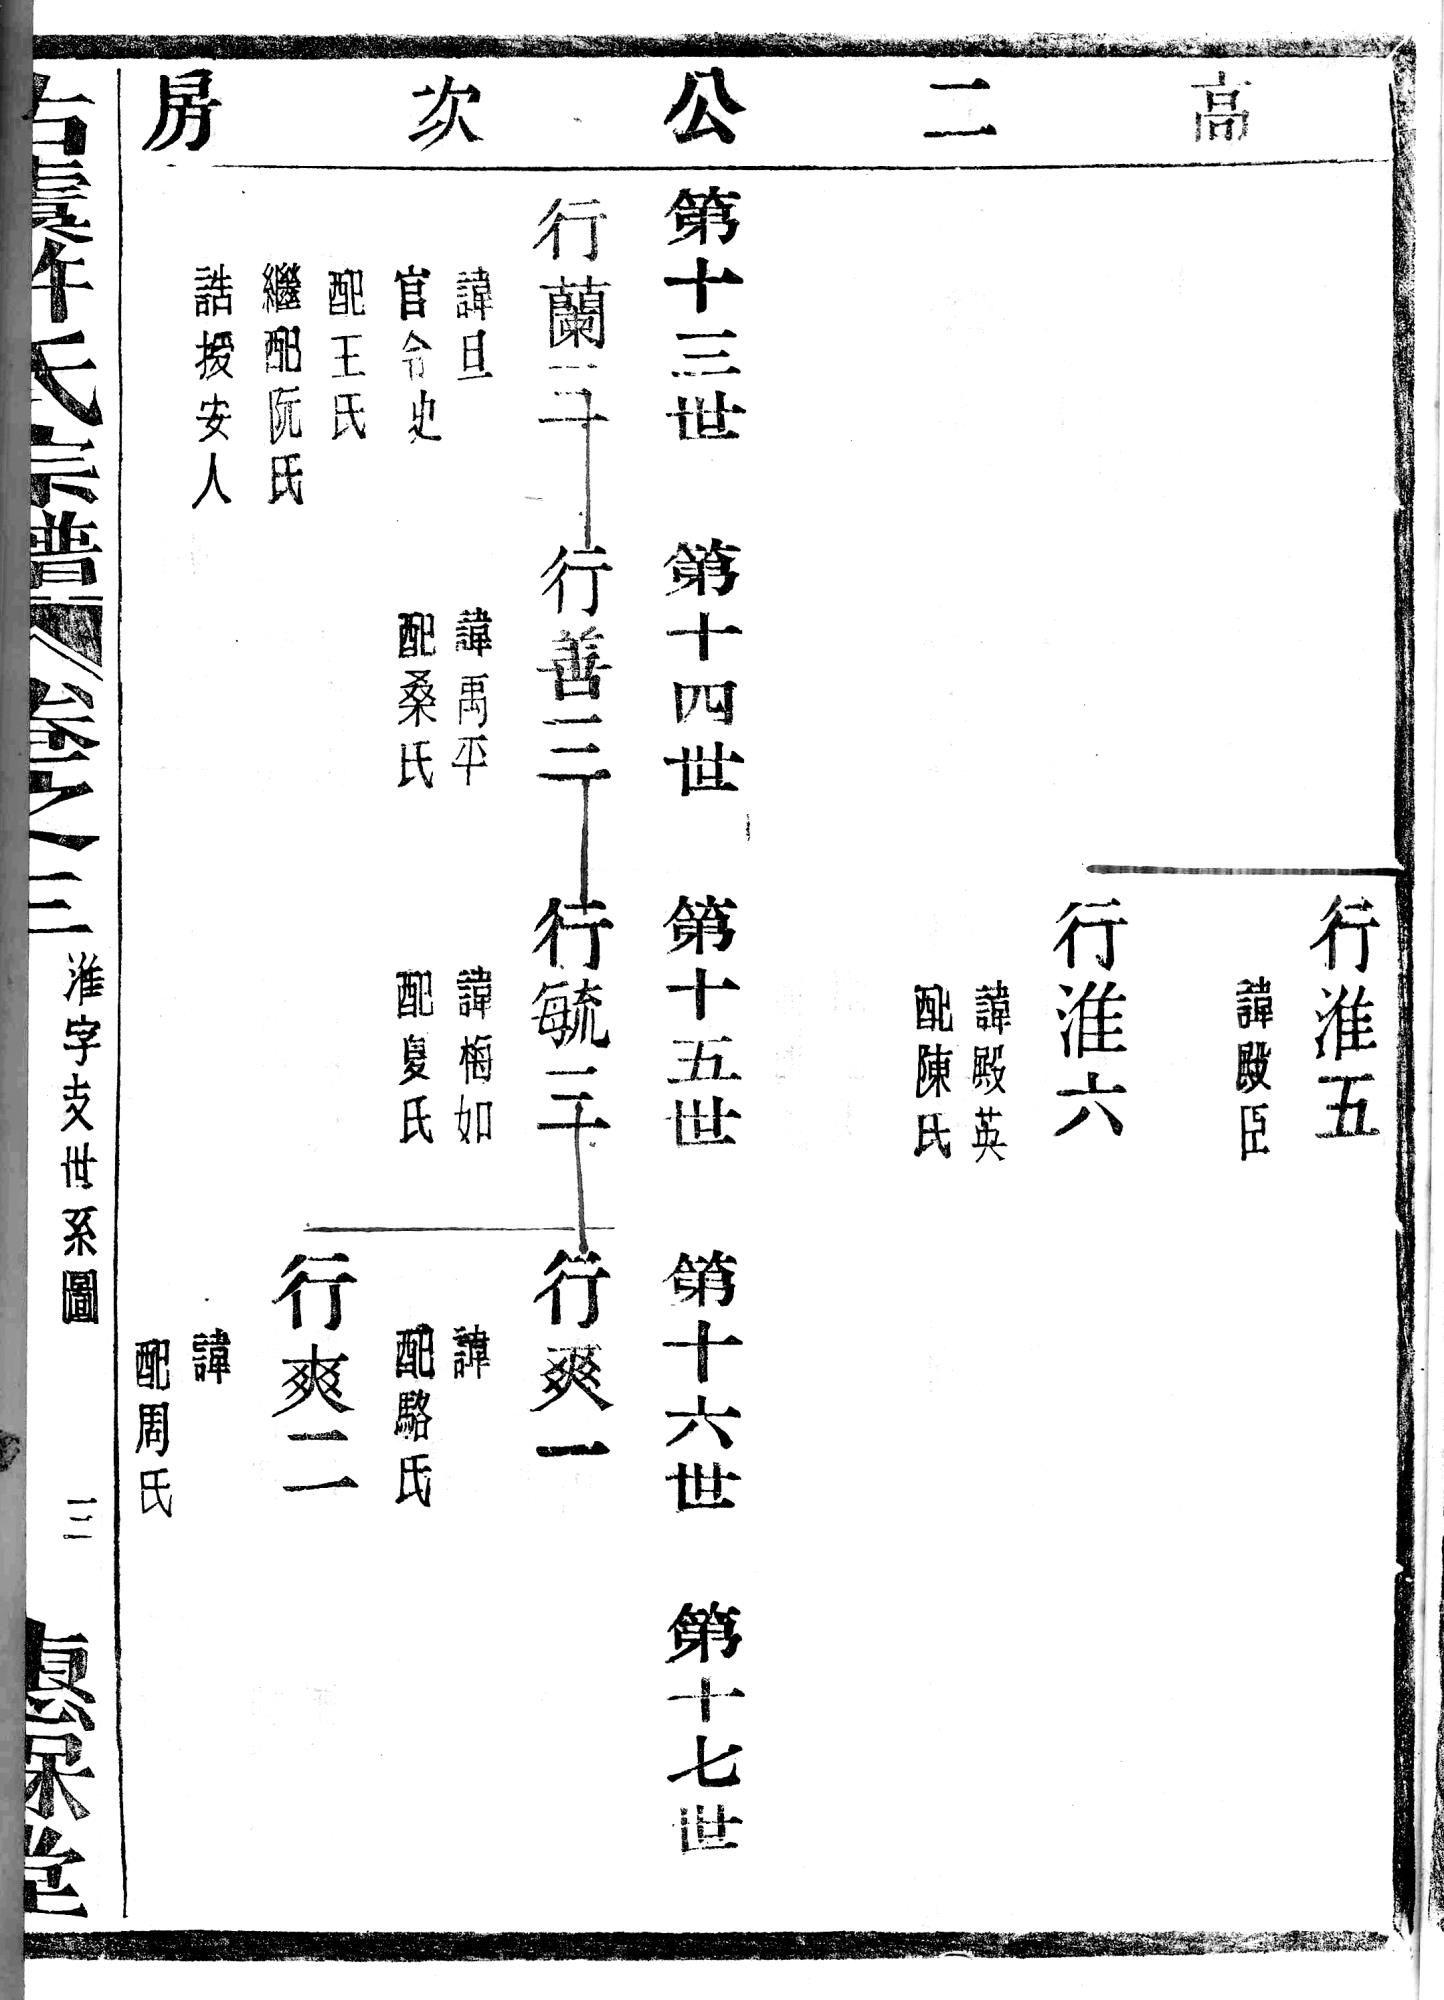 高二公次房
行淮五
諱殿臣
行淮六
諱殿英
配陳氏
第十三世
第十四世
第十五世
第十六世
第十七世
行蘭三
諱旦
官令史
配王氏
繼配阮氏
誥授安人
行善三
諱禹平
配桑氏
行毓三
諱梅如
配夏氏
行爽一
諱
配駱氏
行爽二
諱
配周氏
古虞許氏宗譜
卷之三
淮字支世系圖
三
堂